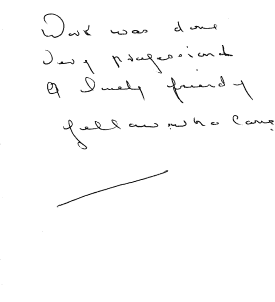 Work was done
very professional
A lovely friendly
fellow who came